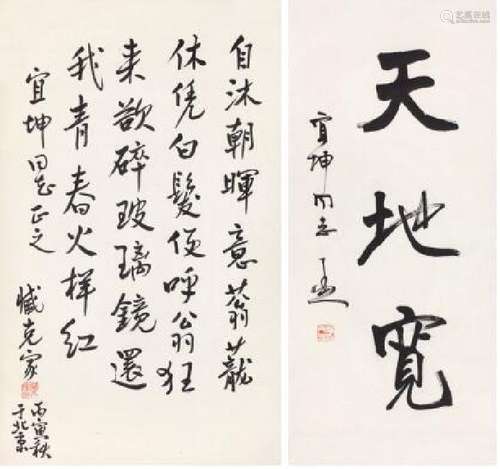 自沐朝暉意蓊蘢
休凭白髮便呼翁狂
来欲碎玻璃鏡還
我青春火样红
宜坤同志正之
臧克家
丙寅秋
于北京
天地寬
宜坤同志
艺狐在线